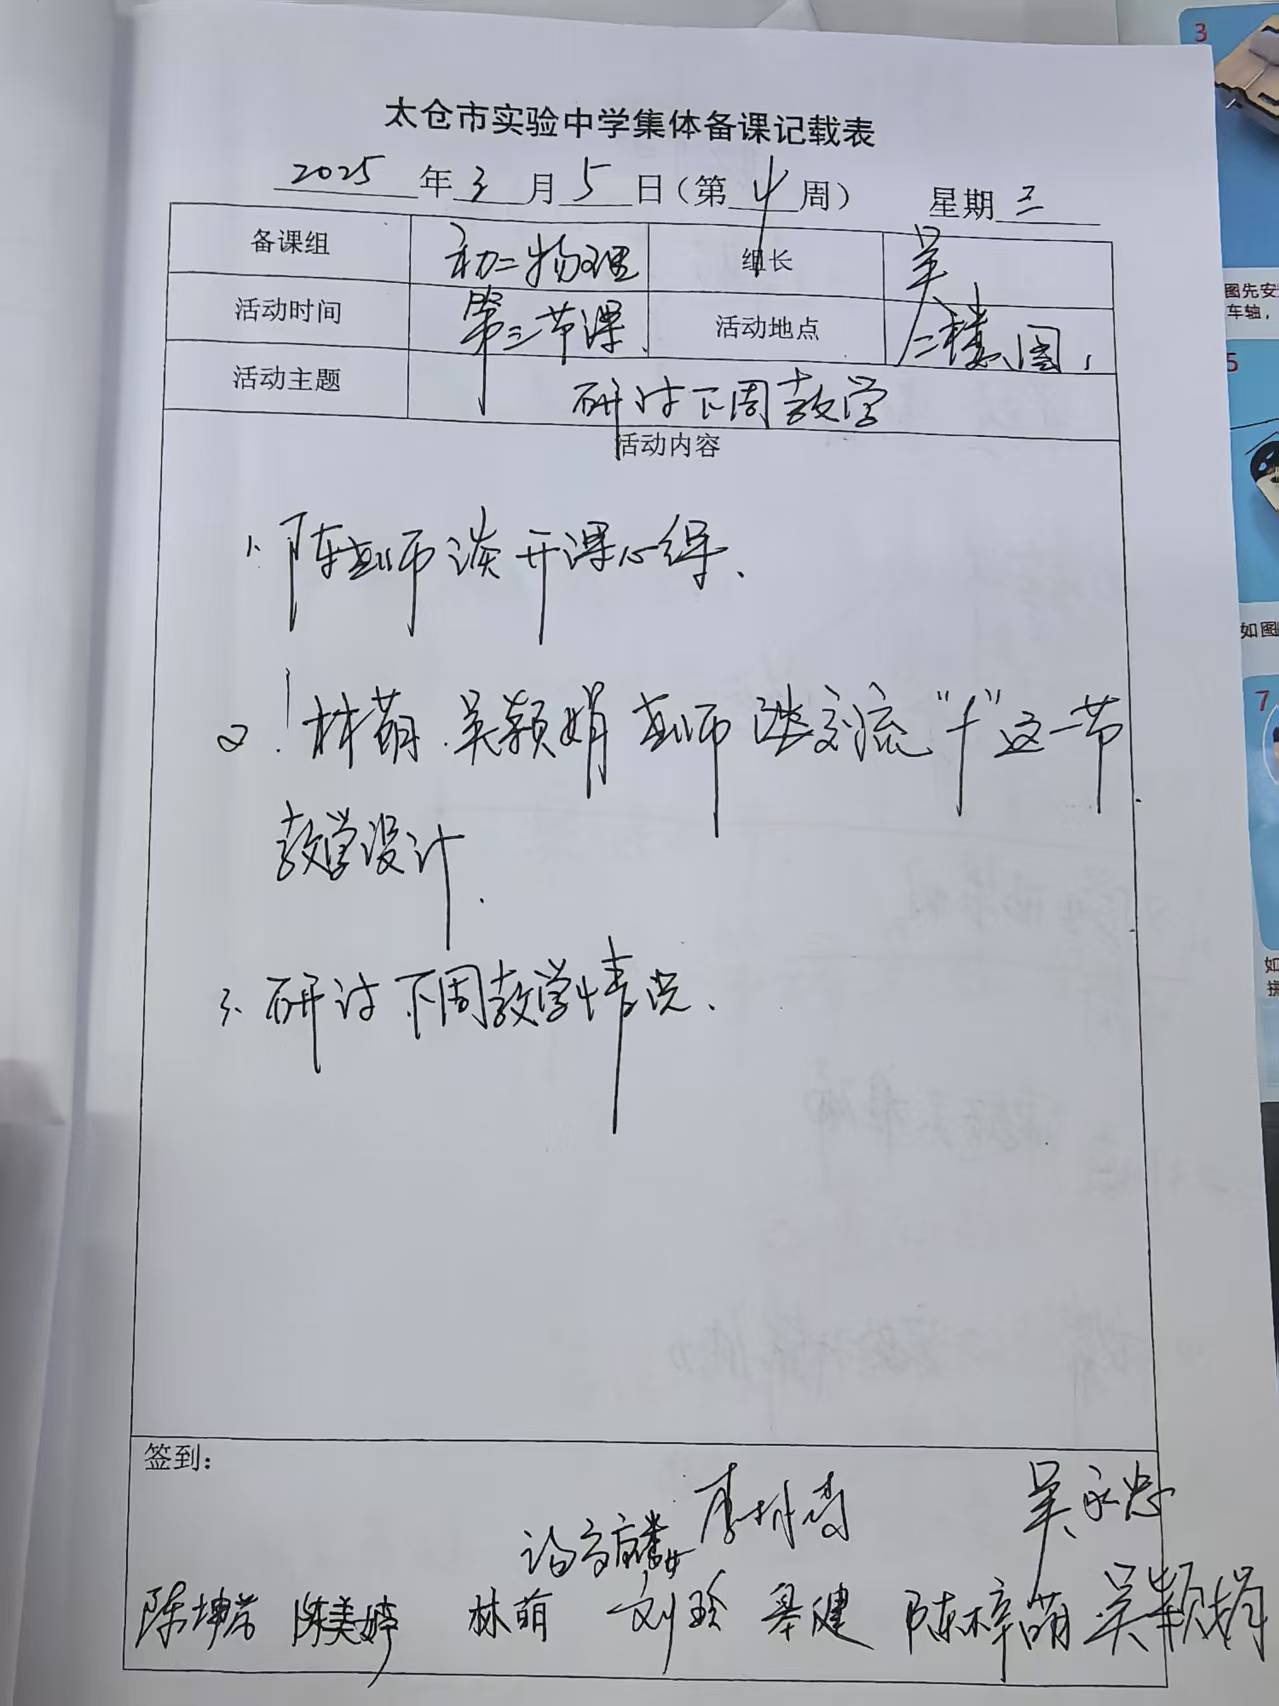 太仓市实验中学集体备课记载表
2025 年 3 月 5 日（第 4 周） 星期 三
备课组 初二物理 组长 吴
活动时间 第三节课 活动地点 二楼
活动主题 研讨下周教学
活动内容
1、陈老师谈开课心得、
2 林萌、吴颖娟老师 交流“f”这一节
教学设计.
3、研讨下周教学情况、
签到：
吴永忠
陈美婷 林萌 刘珍 健 陈梓萌 吴颖娟
3
图先安
车轴，
5
如图
7
如
拼